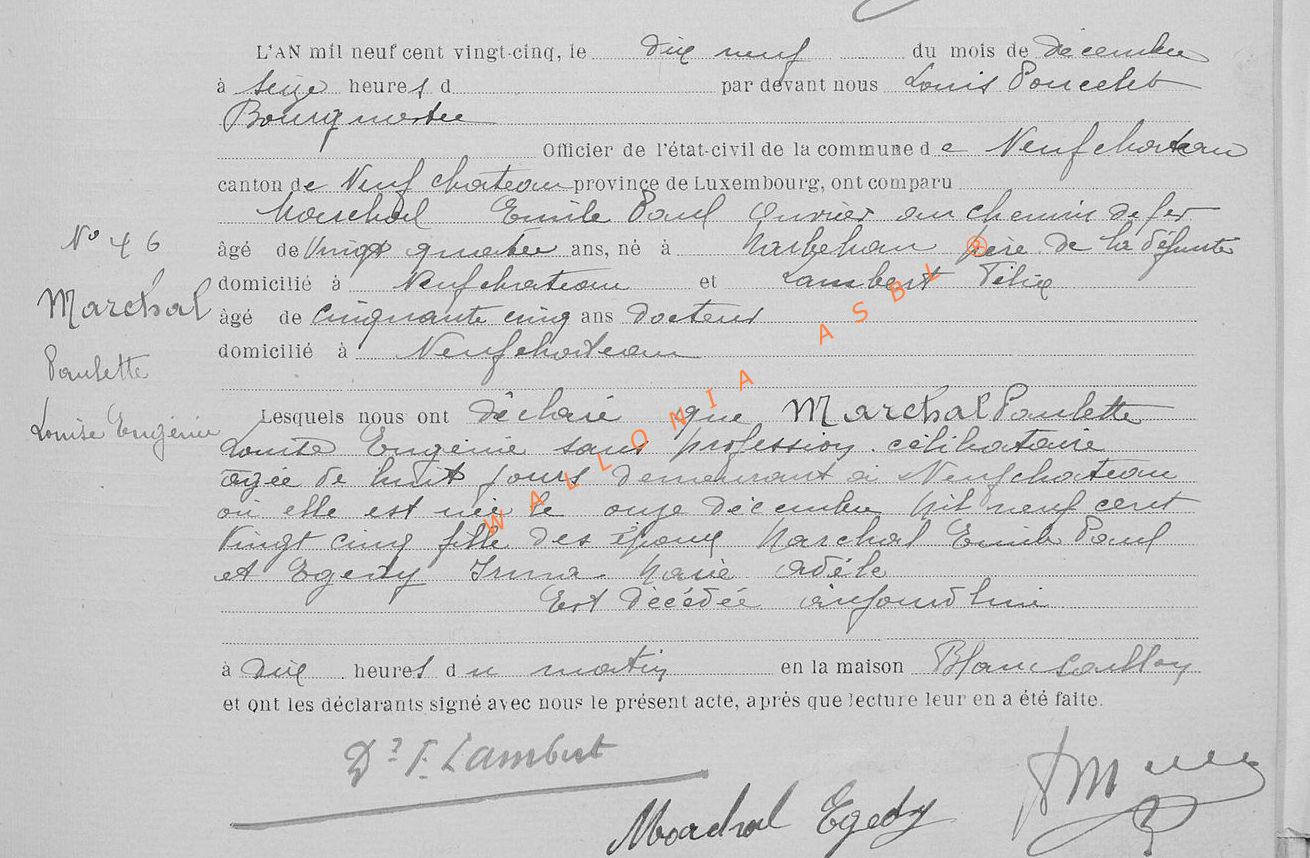 L'AN mil neuf cent vingt-cinq, le dix neuf du mois de décembre
à seize heures d par devant nous Louis Poncelet
Bourgmestre
Officier de l'état-civil de la commune de Neufchateau
canton de Neufchateau province de Luxembourg, ont comparu
Marchal Emile Paul Ouvrier au chemin de fer
N° 46
âgé de Vingt quatre ans, né à Marbehan père de la défunte
domicilié à Neufchateau et Lambert Félix
Marchal
âgé de Cinquante cinq ans docteur
domicilié à Neufchateau
Paulette
Lesquels nous ont déclaré que Marchal Paulette
Louise Eugénie
Louise Eugénie sans profession célibataire
agée de huit jours demeurant à Neufchateau
où elle est née le onze décembre Mil neuf cent
Vingt cinq fille des époux Marchal Emile Paul
et Egedy Irma Marie Adèle
Est décédée aujourd'hui
à dix heures du matin en la maison
et ont les déclarants signé avec nous le présent acte, après que lecture leur en a été faite.
Dr F. Lambert
Marchal Egedy
WALLONIA ASBL ®